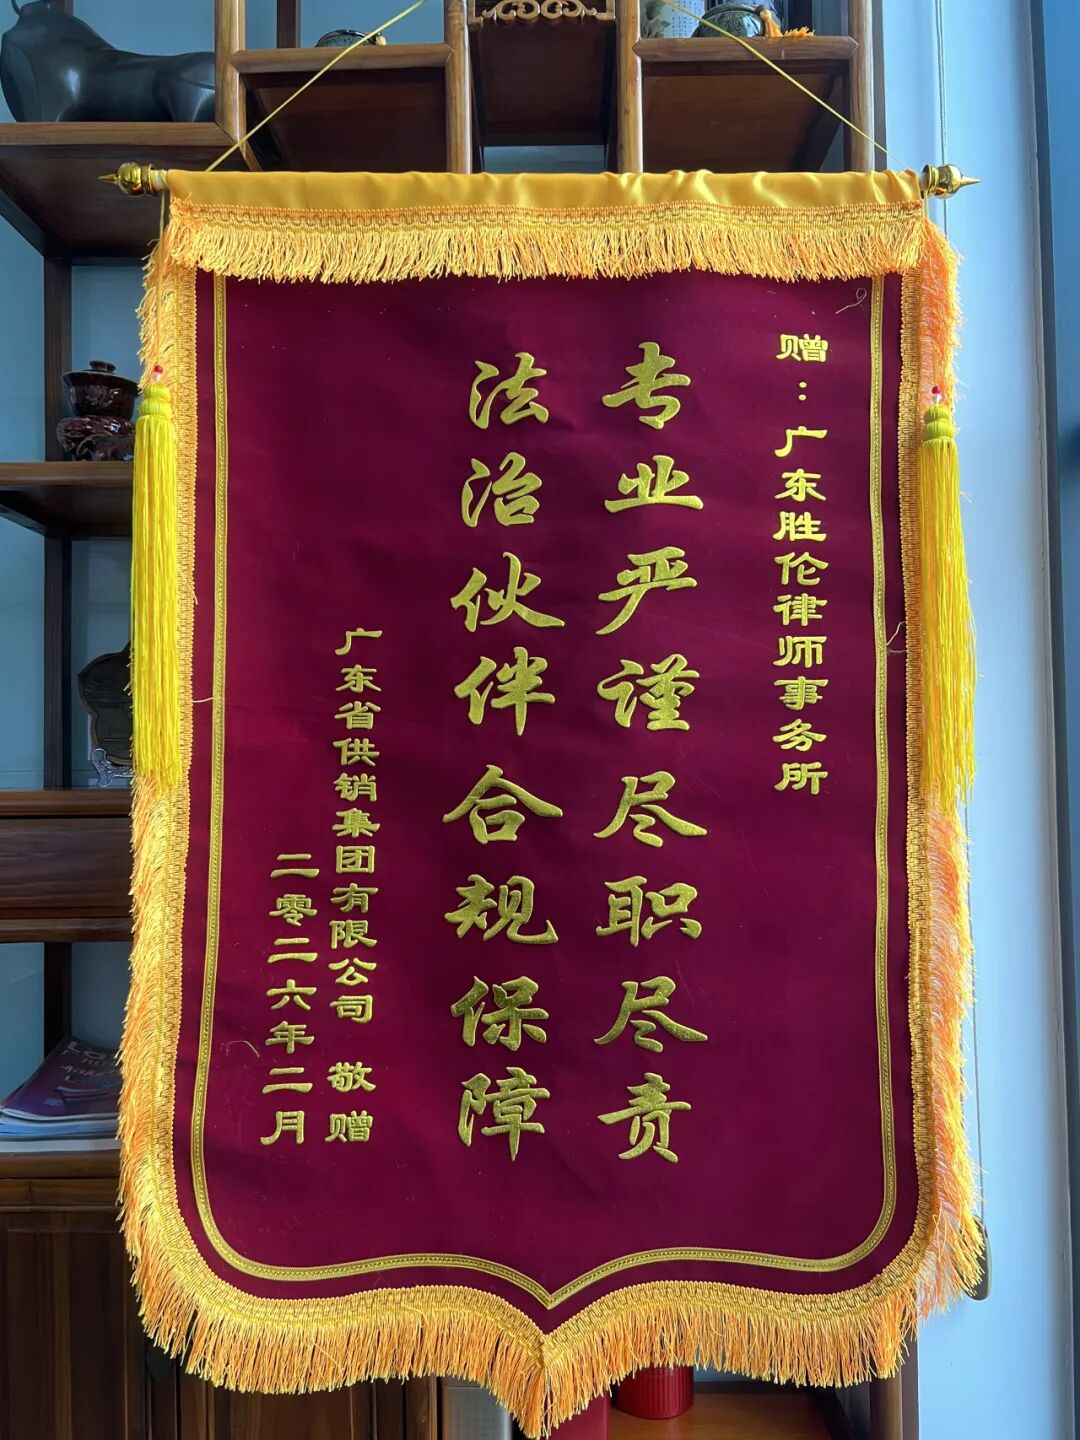 赠：广东胜伦律师事务所
专业严谨尽职尽责
法治伙伴合规保障
广东省供销集团有限公司 敬赠
二零二六年二月